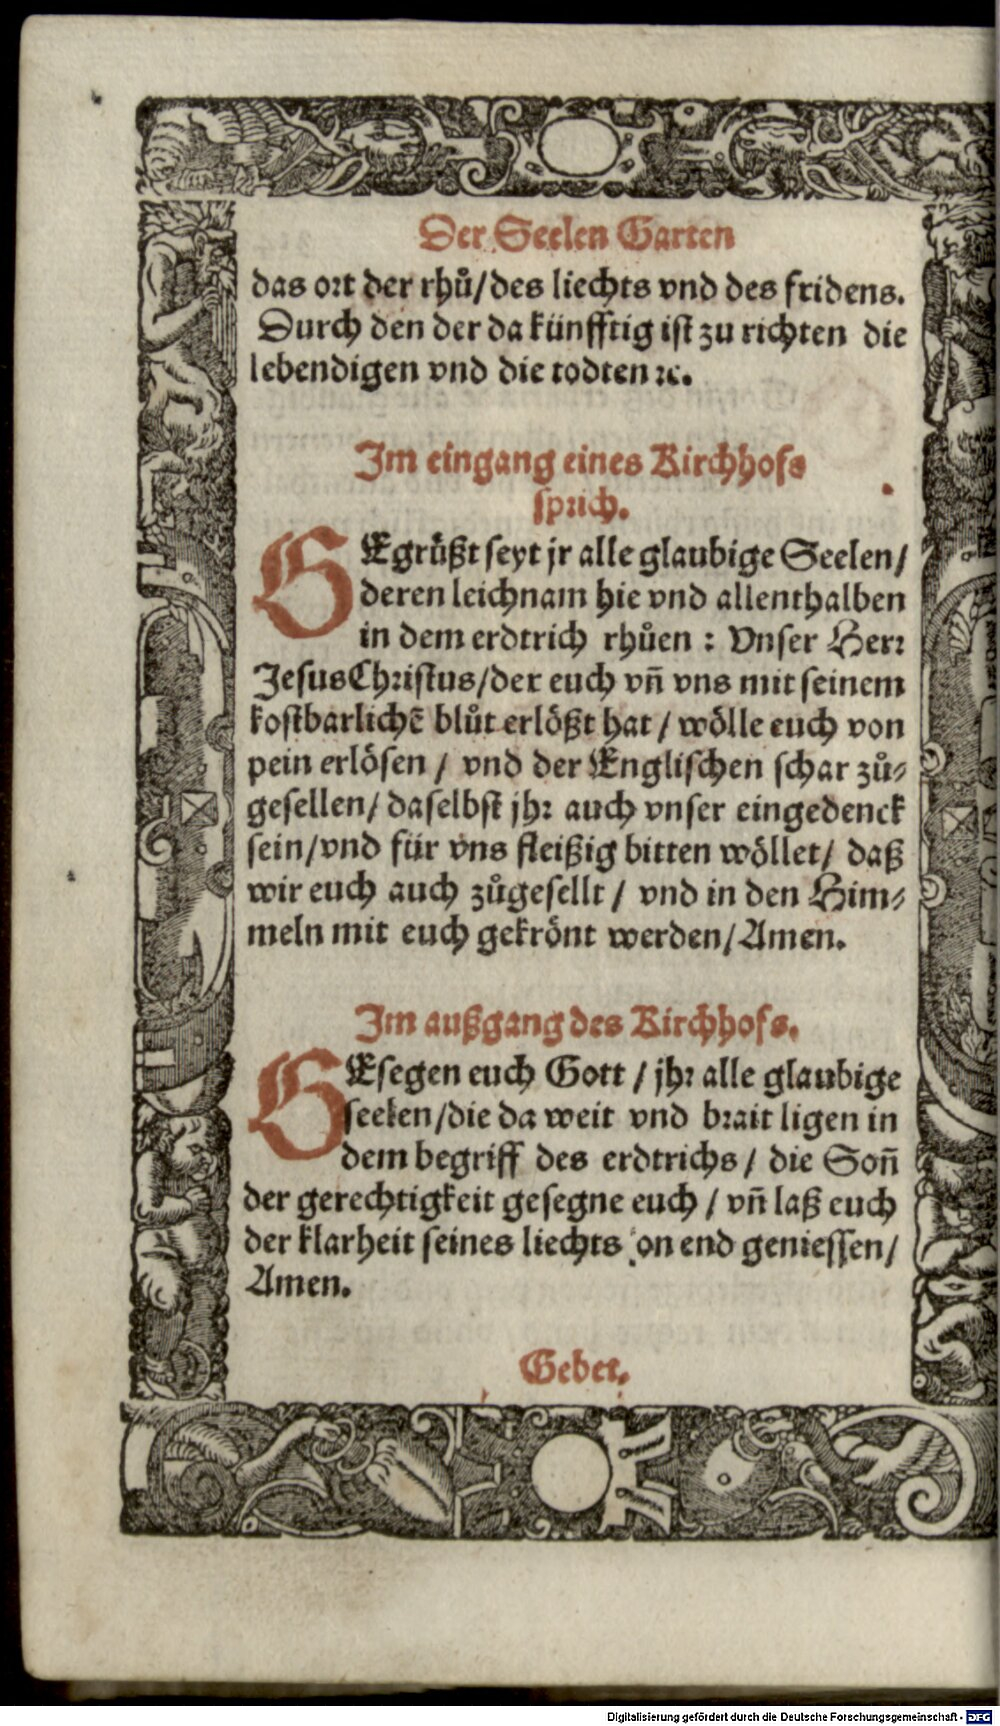 Der Seelen Garten
das ort der rhů/des liechts vnd des fridens.
Durch den der da künfftig ist zu richten die
lebendigen vnd die todten ꝛc.
Im eingang eines Kirchhofs
sprich.
GEgrüßt seyt jr alle glaubige Seelen/
deren leichnam hie vnd allenthalben
in dem erdtrich rhůen : Vnser Herr
Jesus Christus/der euch vn̄ vns mit seinem
kostbarlichē blůt erlößt hat / wölle euch von
pein erlösen / vnd der Englischen schar zů⸗
gesellen/ daselbst jhr auch vnser eingedenck
sein/vnd für vns fleißig bitten wöllet/ daß
wir euch auch zůgesellt / vnd in den Him⸗
meln mit euch gekrönt werden/Amen.
Im außgang des Kirchhofs.
GEsegen euch Gott / jhr alle glaubige
seelen/die da weit vnd brait ligen in
dem begriff des erdtrichs / die Son̄
der gerechtigkeit gesegne euch / vn̄ laß euch
der klarheit seines liechts on end geniessen/
Amen.
Gebet.
Digitalisierung gefördert durch die Deutsche Forschungsgemeinschaft - DFG